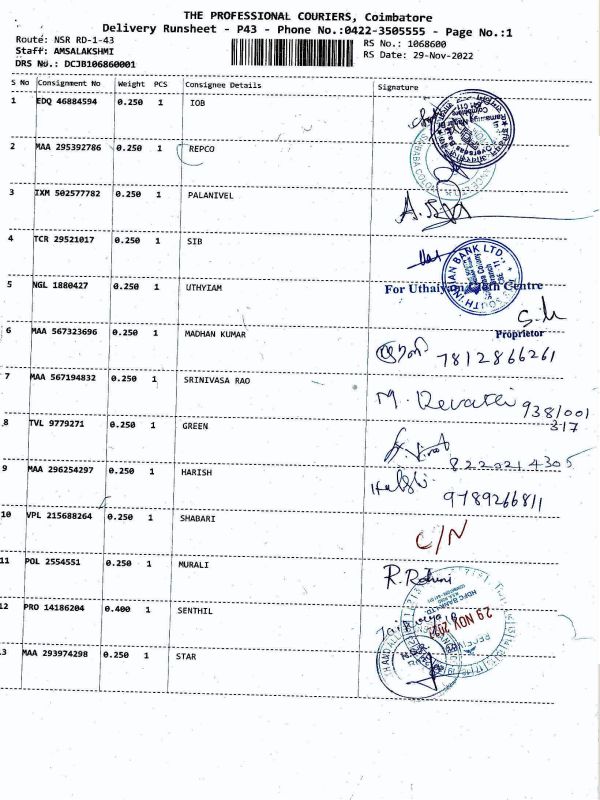 THE PROFESSIONAL COURIERS, Coimbatore
Delivery Runsheet - P43 - Phone No.:0422-3505555 - Page No.:1
Route: NSR RD-1-43
RS No.: 1068600
Staff: AMSALAKSHMI
RS Date: 29-Nov-2022
DRS No.: DCJB106860001
S No Consignment No Weight PCS Consignee Details Signature
1 EDQ 46884594 0.250 1 IOB
2 MAA 295392786 0.250 1 REPCO
3 IXM 502577782 0.250 1 PALANIVEL
4 TCR 29521017 0.250 1 SIB
INDIAN BANK LTD.
5 NGL 1880427 0.250 1 UTHYIAM
For Uthaiyam Cloth Centre
Proprietor
6 MAA 567323696 0.250 1 MADHAN KUMAR
7812866261
7 MAA 567194832 0.250 1 SRINIVASA RAO
M. Revathi 9381001
317
8 TVL 9779271 0.250 1 GREEN
8220214305
9 MAA 296254297 0.250 1 HARISH
9789266811
10 VPL 215688264 0.250 1 SHABARI
C/N
11 POL 2554551 0.250 1 MURALI
12 PRO 14186204 0.400 1 SENTHIL
29 NOV
13 MAA 293974298 0.250 1 STAR